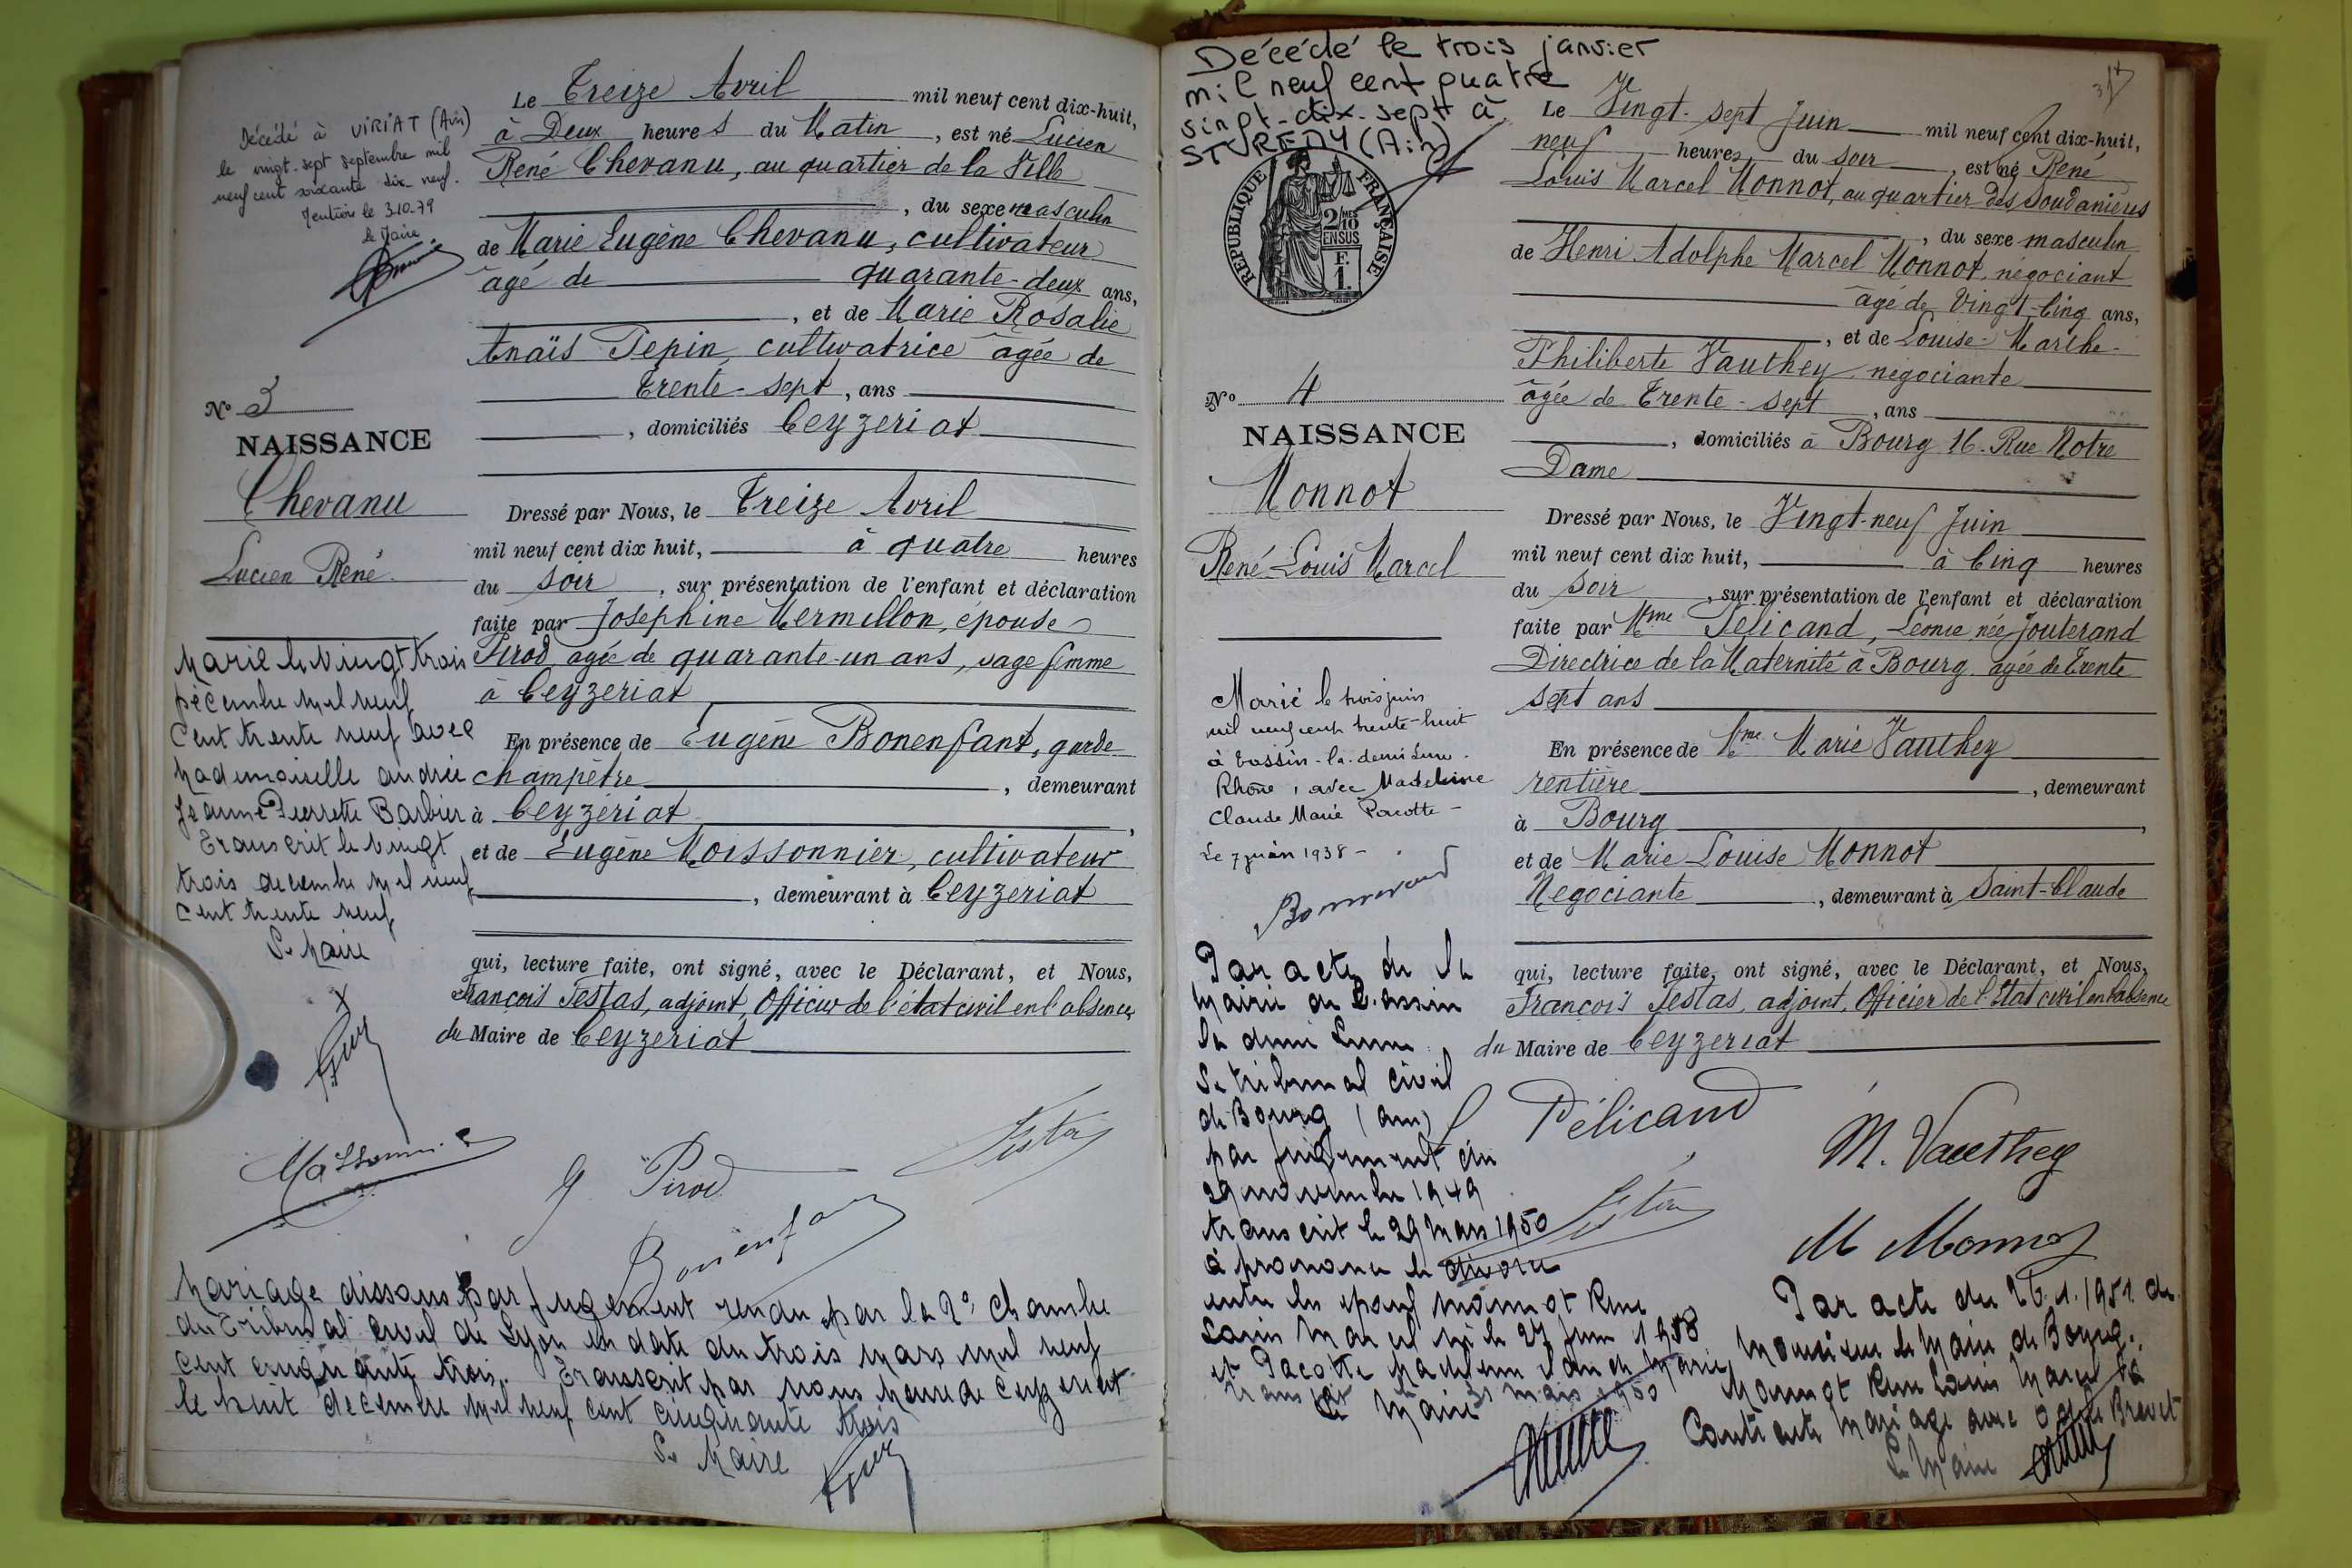 Décédé à VIRIAT (Ain)
le vingt-sept septembre mil
neuf cent soixante dix-neuf.
Mention le 3.10.79
Le Maire
Le Treize Avril mil neuf cent dix-huit,
à Deux heures du Matin, est né Lucien
René Chevanu, au quartier de la Ville
, du sexe masculin
de Marie Eugène Chevanu, cultivateur
âgé de quarante-deux ans,
, et de Marie Rosalie
Anaïs Pepin, cultivatrice âgée de
Trente-sept, ans
, domiciliés Ceyzeriat
N° 3
NAISSANCE
Chevanu
Lucien René
Dressé par Nous, le Treize Avril
mil neuf cent dix huit, à quatre heures
du soir, sur présentation de l'enfant et déclaration
faite par Joséphine Mermillon, épouse
Pirod, agée de quarante-un ans, sage femme
à Ceyzeriat
En présence de Eugène Bonenfant, garde
champêtre, demeurant
à Ceyzeriat,
et de Eugène Moissonnier, cultivateur
, demeurant à Ceyzeriat
qui, lecture faite, ont signé, avec le Déclarant, et Nous,
François Festas, adjoint, Officier de l'état civil en l'absence
du Maire de Ceyzeriat
Marié le Vingt trois
Décembre mil neuf
Cent trente neuf avec
Mademoiselle Andrée
Jeanne Pierrette Barbier
Transcrit le Vingt
trois decembre mil neuf
Cent trente neuf
Le Maire
J Pirod
Bonenfant
Mariage dissous par Jugement rendu par la 2e Chambre
du Tribunal civil de Lyon en date du trois Mars mil neuf
Cent cinquante trois. Transcrit par nous Maire de Ceyzeriat
le huit decembre mil neuf cent cinquante trois
Le Maire
Décédé le trois janvier
mil neuf cent quatre
vingt-dix-sept à
ST REMY (Ain)
RÉPUBLIQUE FRANÇAISE
2/10 MES
EN SUS
F.
1.
Le Vingt-sept Juin mil neuf cent dix-huit,
neuf heures du soir, est né René
Louis Marcel Monnot, au quartier des Soudanières
, du sexe masculin
de Henri Adolphe Marcel Monnot, négociant
âgé de Vingt-Cinq ans,
, et de Louise-Marthe-
Philiberte Vauthey négociante
âgée de Trente-sept, ans
, domiciliés à Bourg 16. Rue Notre
Dame
N° 4
NAISSANCE
Monnot
René Louis Marcel
Dressé par Nous, le Vingt-neuf Juin
mil neuf cent dix huit, à Cinq heures
du soir, sur présentation de l'enfant et déclaration
faite par Mme Pélicand, Léonie née Jouterand
Directrice de la Maternité à Bourg agée de Trente
sept ans
En présence de Mme Marie Vauthey
rentière, demeurant
à Bourg,
et de Marie Louise Monnot
Négociante, demeurant à Saint-Claude
qui, lecture faite, ont signé, avec le Déclarant, et Nous,
François Festas, adjoint, Officier de l'Etat civil en l'absence
du Maire de Ceyzeriat
Marié le trois juin
mil neuf cent trente-huit
à Tassin-la-demi Lune
Rhône, avec Madeleine
Claude Marie Pacotte -
Le 7 juin 1938 -
Par acte de la
Mairie de Tassin
la demi Lune
Le tribunal civil
de Bourg (Ain)
par Jugement du
29 novembre 1949
transcrit le 29 Mars 1950
à prononcé le divorce
entre les époux Monnot René
Louis Marcel né le 27 Juin 1918
et Pacotte Madeleine Claude Marie
31 mars 1950
Le Maire
Pélicand
M. Vauthey
M Monnot
Par acte du 26.1.1951 de
Monsieur le Maire de Bourg.
Monnot René Louis Marcel a
Contracté Mariage avec Odette Brevet
Le Maire